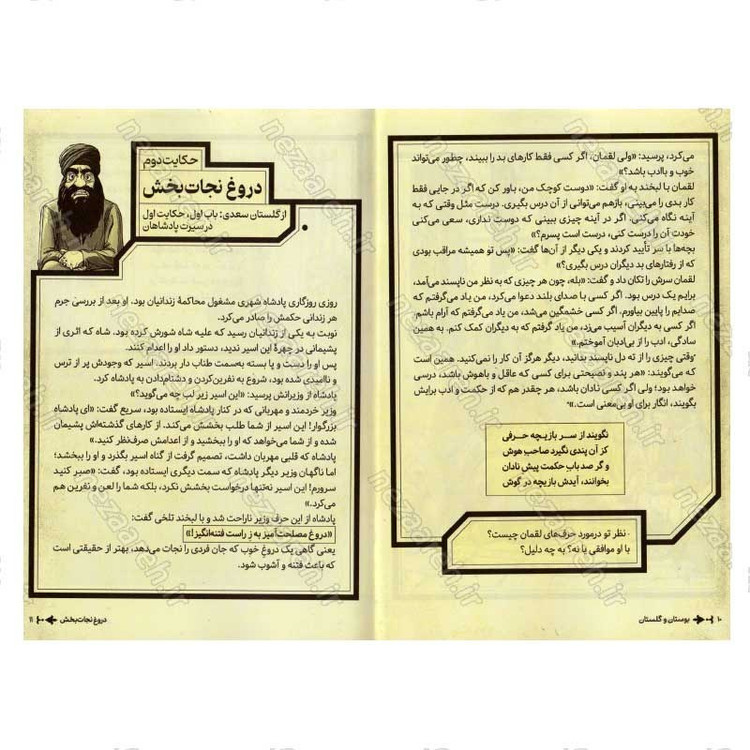 می‌کرد، پرسید: «ولی لقمان، اگر کسی فقط کارهای بد را ببیند، چطور می‌تواند
خوب و باادب باشد؟»
لقمان با لبخند به او گفت: «دوست کوچک من، باور کن که اگر در جایی فقط
کار بدی را می‌بینی، بازهم می‌توانی از آن درس بگیری. درست مثل وقتی که به
آینه نگاه می‌کنی. اگر در آینه چیزی ببینی که دوست نداری، سعی می‌کنی
خودت آن را درست کنی، درست است پسرم؟»
بچه‌ها با سر تأیید کردند و یکی دیگر از آن‌ها گفت: «پس تو همیشه مراقب بودی
که از رفتارهای بد دیگران درس بگیری؟»
لقمان سرش را تکان داد و گفت: «بله، چون هر چیزی که به نظر من ناپسند می‌آمد،
برایم یک درس بود. اگر کسی با صدای بلند دعوا می‌کرد، من یاد می‌گرفتم که
صدایم را پایین بیاورم. اگر کسی خشمگین می‌شد، من یاد می‌گرفتم که آرام باشم.
اگر کسی به دیگران آسیب می‌زد، من یاد گرفتم که به دیگران کمک کنم. به همین
سادگی، ادب را از بی‌ادبان آموختم.»
وقتی چیزی را از ته دل ناپسند بدانید، دیگر هرگز آن کار را نمی‌کنید. همین است
که می‌گویند: «هر پند و نصیحتی برای کسی که عاقل و باهوش باشد، درسی
خواهد بود؛ ولی اگر کسی نادان باشد، هر چقدر هم که از حکمت و ادب برایش
بگویند، انگار برای او بی‌معنی است.»
نگویند از سر بازیچه حرفی
کز آن پندی نگیرد صاحب هوش
و گر صد باب حکمت پیش نادان
بخوانند، آیدش بازیچه در گوش
· نظر تو درمورد حرف‌های لقمان چیست؟
با او موافقی یا نه؟ به چه دلیل؟
۱۰ بوستان و گلستان
حکایت دوم
دروغ نجات‌بخش
از گلستان سعدی: باب اول، حکایت اول
در سیرت پادشاهان
روزی روزگاری پادشاه شهری مشغول محاکمهٔ زندانیان بود. او بعد از بررسی جرم
هر زندانی حکمش را صادر می‌کرد.
نوبت به یکی از زندانیان رسید که علیه شاه شورش کرده بود. شاه که اثری از
پشیمانی در چهرهٔ این اسیر ندید، دستور داد او را اعدام کنند.
پس او را دست و پا بسته به‌سمت طناب دار بردند. اسیر که وجودش پر از ترس
و ناامیدی شده بود، شروع به نفرین‌کردن و دشنام‌دادن به پادشاه کرد.
پادشاه از وزیرانش پرسید: «این اسیر زیر لب چه می‌گوید؟»
وزیر خردمند و مهربانی که در کنار پادشاه ایستاده بود، سریع گفت: «ای پادشاه
بزرگوار! این اسیر از شما طلب بخشش می‌کند. از کارهای گذشته‌اش پیشمان
شده و از شما می‌خواهد که او را ببخشید و از اعدامش صرف‌نظر کنید.»
پادشاه که قلبی مهربان داشت، تصمیم گرفت از گناه اسیر بگذرد و او را ببخشد؛
اما ناگهان وزیر دیگر پادشاه که سمت دیگری ایستاده بود، گفت: «صبر کنید
سرورم! این اسیر نه‌تنها درخواست بخشش نکرد، بلکه شما را لعن و نفرین هم
می‌کرد.»
پادشاه از این حرف وزیر ناراحت شد و با لبخند تلخی گفت:
«دروغ مصلحت‌آمیز به ز راست فتنه‌انگیز!»
یعنی گاهی یک دروغ خوب که جان فردی را نجات می‌دهد، بهتر از حقیقتی است
که باعث فتنه و آشوب شود.
دروغ نجات‌بخش ۱۱
nezaareh.ir